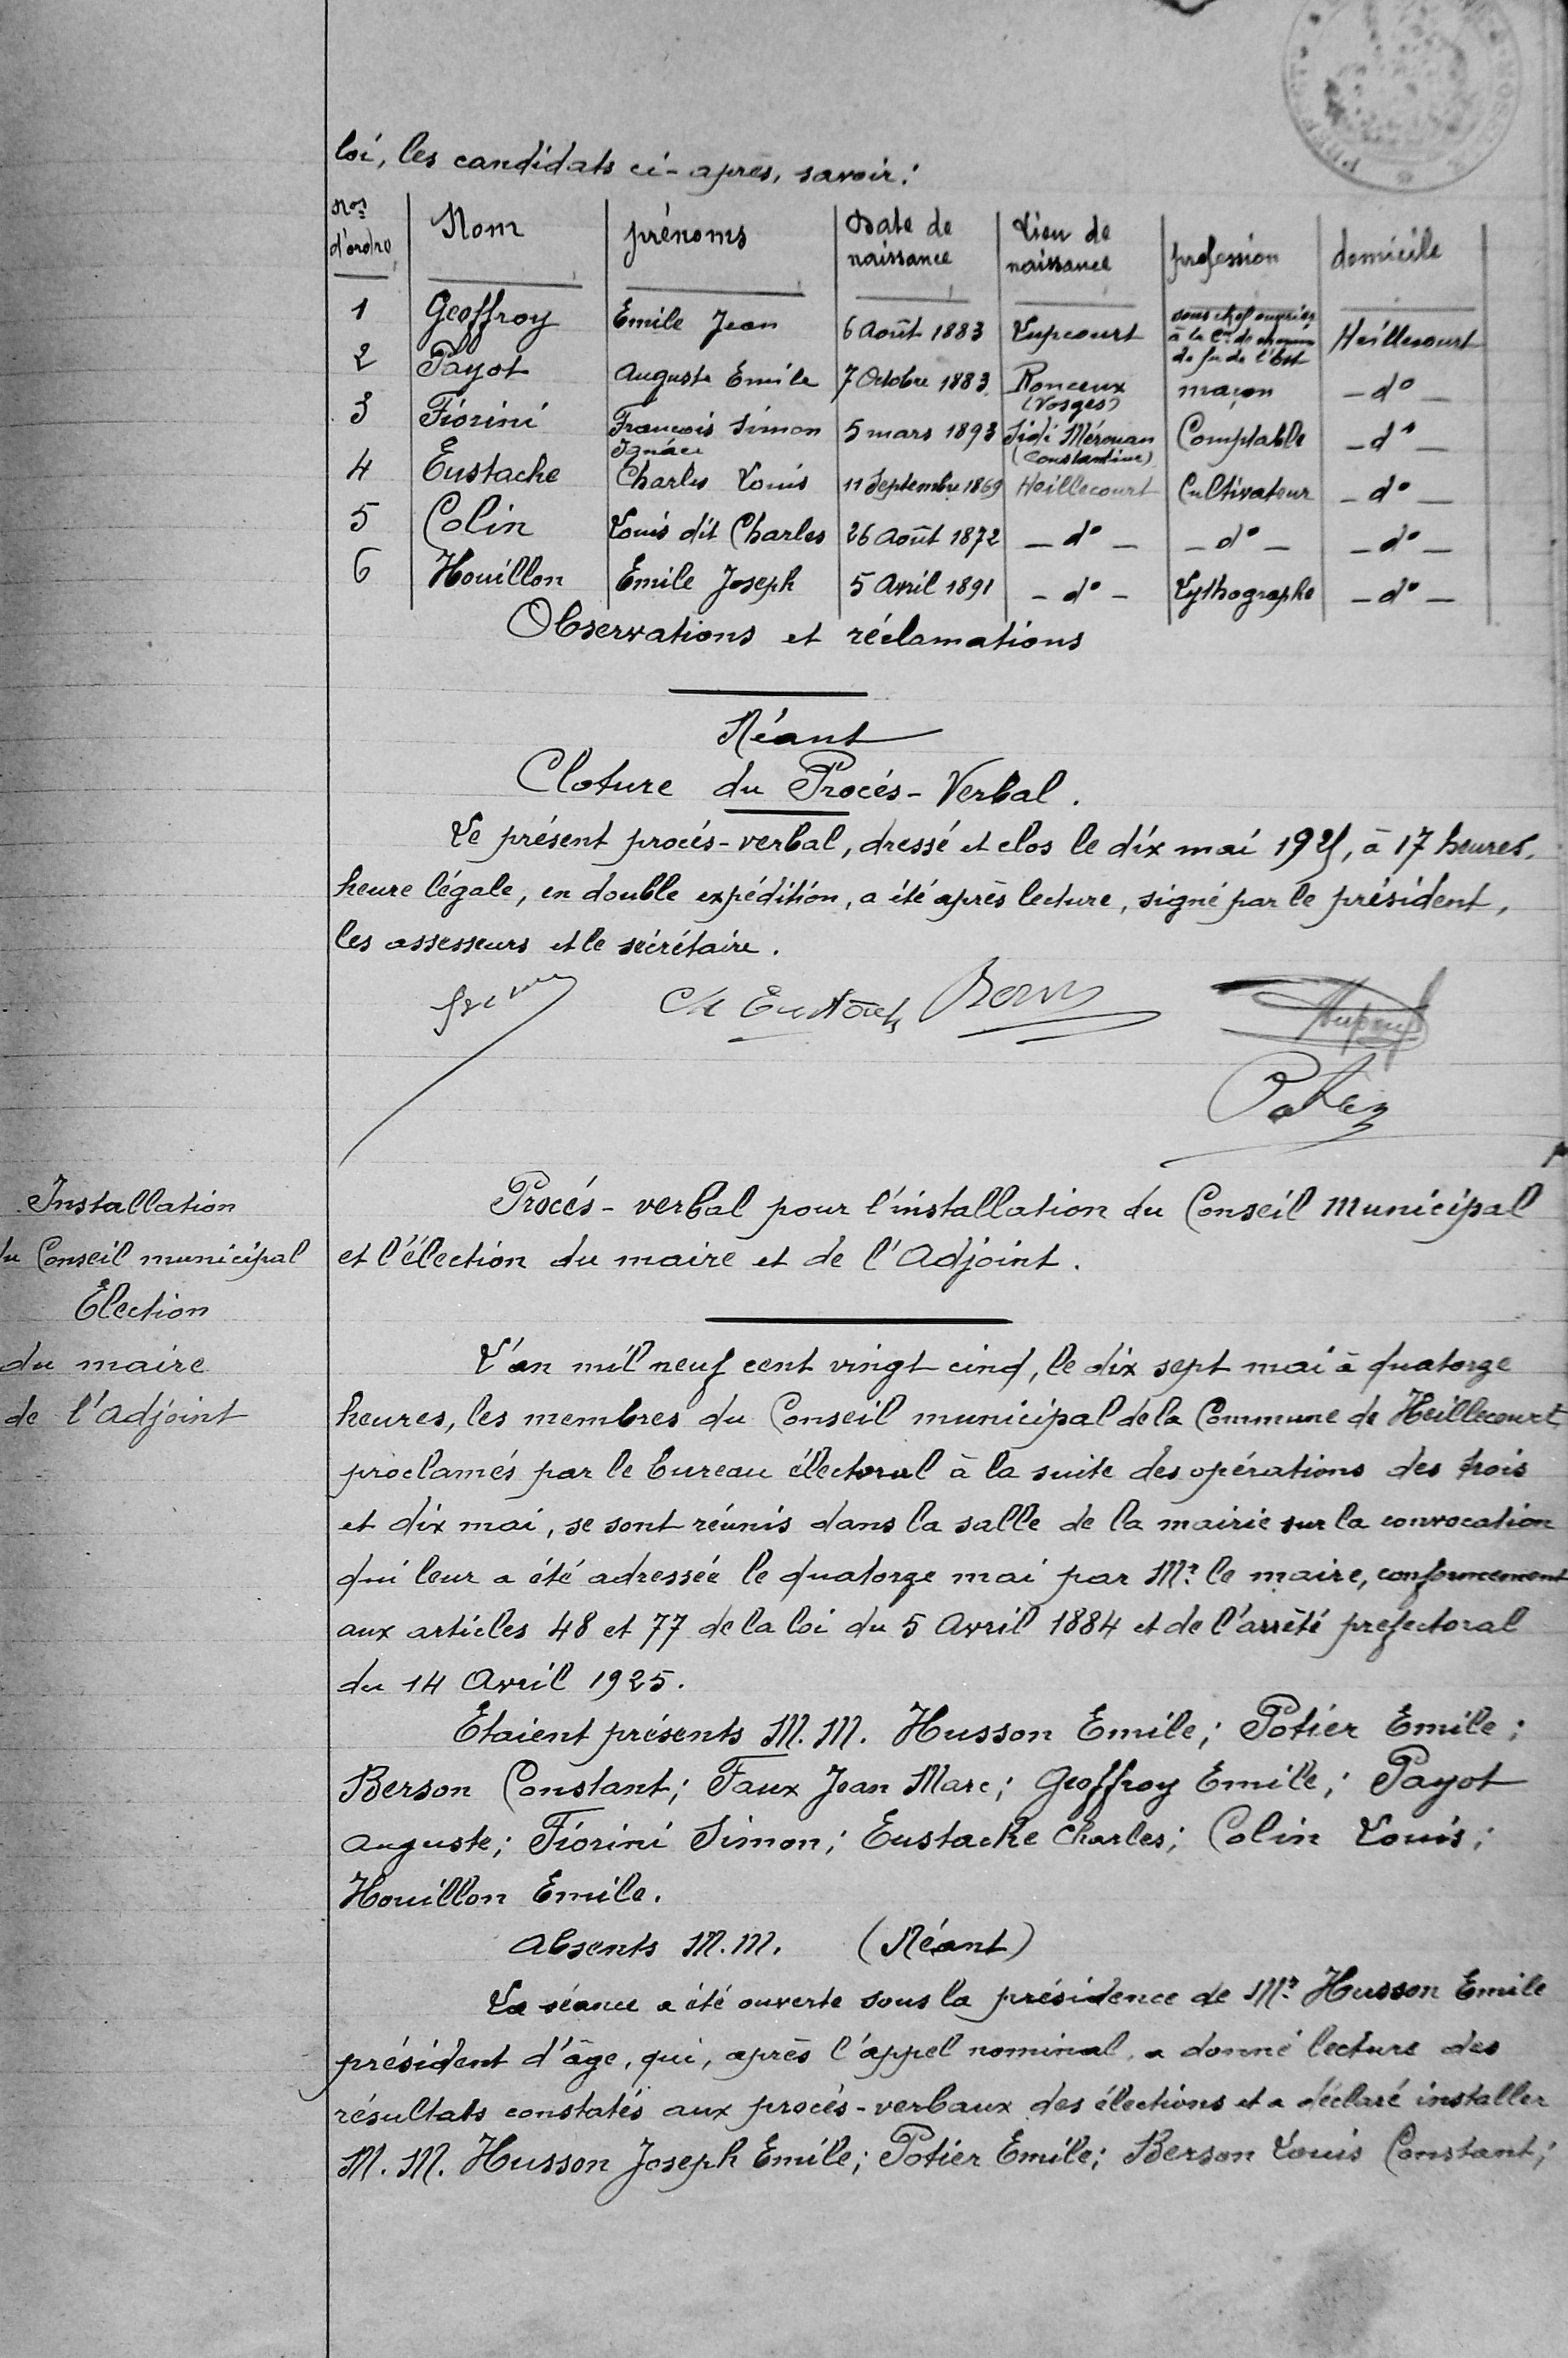 loi, les candidats ci-après, savoir:
Nos d'ordre | Nom | prénoms | Date de naissance | Lieu de naissance | profession | domicile
1 | Geoffroy | Emile Jean | 6 Août 1883 | Lupcourt | sous chef ouvrier à la Cie de chemin de fer de l'Est | Heillecourt
2 | Payot | Auguste Emile | 7 Octobre 1883 | Ronceux (Vosges) | maçon | - d° -
3 | Fiorini | François Simon Ignace | 5 mars 1893 | Sidi Mérouan (Constantine) | Comptable | - d° -
4 | Eustache | Charles Louis | 11 Septembre 1869 | Heillecourt | Cultivateur | - d° -
5 | Colin | Louis dit Charles | 26 Août 1872 | - d° - | - d° - | - d° -
6 | Houillon | Emile Joseph | 5 Avril 1891 | - d° - | Lythographe | - d° -
Observations et réclamations
Néant
Cloture du Procés-Verbal.
Le présent procés-verbal, dressé et clos le dix mai 1925, à 17 heures,
heure légale, en double expédition, a été après lecture, signé par le président,
les assesseurs et le sécrétaire.
Ch Eustache
Installation
du Conseil municipal
Élection
du maire
de l'Adjoint
Procés-verbal pour l'installation du Conseil Municipal
et l'élection du maire et de l'Adjoint.
L'an mil neuf cent vingt cinq, le dix sept mai à quatorze
heures, les membres du Conseil municipal de la Commune de Heillecourt
proclamés par le bureau électoral à la suite des opérations des trois
et dix mai, se sont réunis dans la salle de la mairie sur la convocation
qui leur a été adressée le quatorze mai par Mr le maire, conformément
aux articles 48 et 77 de la loi du 5 Avril 1884 et de l'arrêté préfectoral
du 14 Avril 1925.
Etaient présents M.M. Husson Emile; Potier Emile;
Berson Constant; Faux Jean Marc; Geoffroy Emile; Payot
Auguste; Fiorini Simon; Eustache Charles; Colin Louis;
Houillon Emile.
Absents M.M. (Néant)
La séance a été ouverte sous la présidence de Mr Husson Emile
président d'âge, qui, après l'appel nominal, a donné lecture des
résultats constatés aux procés-verbaux des élections et a déclaré installer
M.M. Husson Joseph Emile; Potier Emile; Berson Louis Constant;